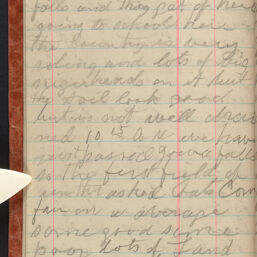 folls and they got of here
going to school here
the country is very
roling and lots of big
nigerheads on it but
the soil look good
but is not well drai
ned 10.15 A M we have
just passed Iowa falls
so the first field of
asked oats Corn
fair on a average
some good some
poor lots of Land